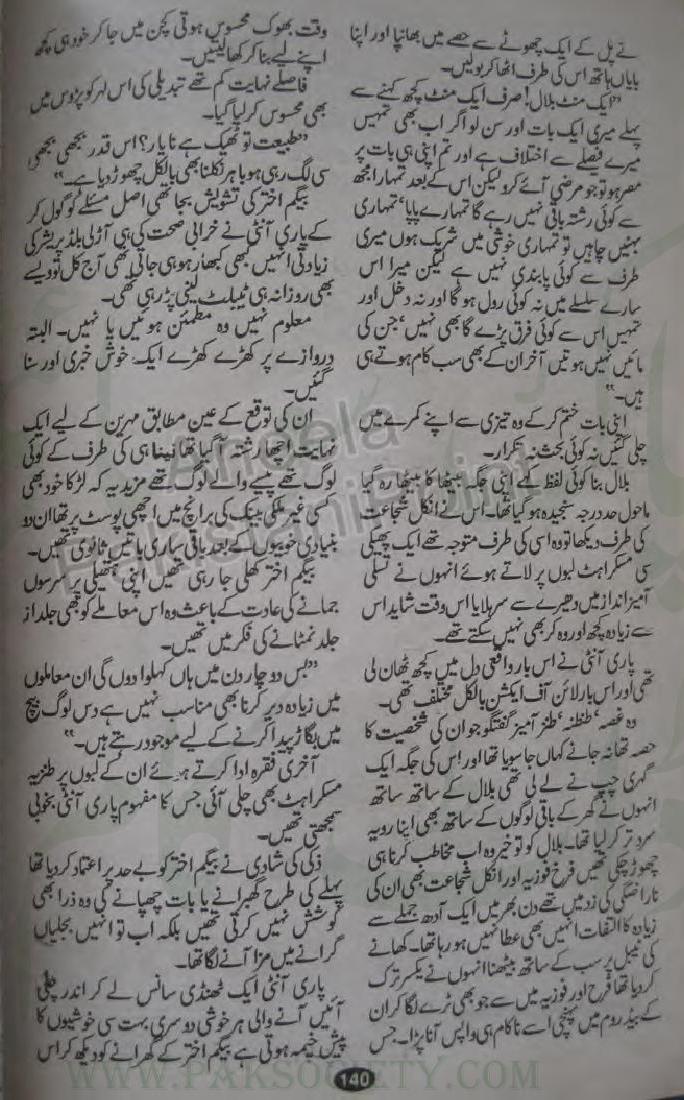 تے پل کے ایک چھوٹے سے حصے میں بھانپا اور اپنا
بایاں ہاتھ اس کی طرف اٹھا کر بولیں۔
"ایک منٹ بلال! صرف ایک منٹ کچھ کہنے سے
پہلے میری ایک بات اور سن لو اگر اب بھی تمہیں
میرے فیصلے سے اختلاف ہے اور تم اپنی ہی بات پر
مصر ہو تو جو مرضی آئے کرو لیکن اس کے بعد تمہارا مجھ
سے کوئی رشتہ باقی نہیں رہے گا تمہارے پاپا' تمہاری
بہنیں چاہیں تو تمہاری خوشی میں شریک ہوں میری
طرف سے کوئی پابندی نہیں ہے لیکن میرا اس
سارے سلسلے میں نہ کوئی رول ہو گا اور نہ دخل اور
تمہیں اس سے کوئی فرق پڑے گا بھی نہیں' جن کی
مائیں نہیں ہوتیں آخر ان کے بھی سب کام ہوتے ہی
ہیں۔"
اپنی بات ختم کر کے وہ تیزی سے اپنے کمرے میں
چلی گئیں نہ کوئی بحث نہ تکرار۔
بلال بنا کوئی لفظ کہے اپنی جگہ بیٹھا کا بیٹھا رہ گیا
ماحول حد درجہ سنجیدہ ہو گیا تھا۔ اس نے انکل شجاعت
کی طرف دیکھا تو وہ اسی کی طرف متوجہ تھے ایک پھیکی
سی مسکراہٹ لبوں پر لاتے ہوئے انہوں نے تسلی
آمیز انداز میں دھیرے سے سر ہلایا اس وقت شاید اس
سے زیادہ کچھ اور وہ کر بھی نہیں سکتے تھے۔
پاری آنٹی نے اس بار واقعی دل میں کچھ ٹھان لی
تھی اور اس بار لائن آف ایکشن بالکل مختلف تھی۔
وہ غصہ' طنطنہ' طنز آمیز گفتگو جو ان کی شخصیت کا
حصہ تھا نہ جانے کہاں جا سویا تھا اور اس کی جگہ ایک
گہری چپ نے لے لی تھی بلال کے ساتھ ساتھ
انہوں نے گھر کے باقی لوگوں کے ساتھ بھی اپنا رویہ
سرد تر کر لیا تھا۔ بلال کو تو خیر وہ اب مخاطب کرنا ہی
چھوڑ چکی تھیں فرح فوزیہ اور انکل شجاعت بھی ان کی
ناراضگی کی زد میں تھے دن بھر میں ایک آدھ جملے سے
زیادہ کا التفات انہیں بھی عطا نہیں ہو رہا تھا۔ کھانے
کی ٹیبل پر سب کے ساتھ بیٹھنا انہوں نے یکسر ترک
کر دیا تھا فرح اور فوزیہ میں سے جو بھی ٹرے لگا کر ان
کے بیڈ روم میں پہنچی اسے ناکام ہی واپس آنا پڑا۔ جس
وقت بھوک محسوس ہوتی کچن میں جا کر خود ہی کچھ
اپنے لیے بنا کر کھا لیتیں۔
فاصلے نہایت کم تھے تبدیلی کی اس لہر کو پڑوس میں
بھی محسوس کر لیا گیا۔
"طبیعت تو ٹھیک ہے نا یار؟ اس قدر بجھی بجھی
سی لگ رہی ہو باہر نکلنا بھی بالکل چھوڑ دیا ہے۔"
بیگم اختر کی تشویش بجا تھی اصل مسئلے کو گول کر
کے پاری آنٹی نے خرابی صحت کی ہی آڑ لی بلڈ پریشر کی
زیادتی انہیں کبھی کبھار ہو ہی جاتی تھی آج کل تو ویسے
بھی روزانہ ہی ٹیبلٹ لینی پڑ رہی تھی۔
معلوم نہیں وہ مطمئن ہوئیں یا نہیں۔ البتہ
دروازے پر کھڑے کھڑے ایک خوش خبری اور سنا
گئیں۔
ان کی توقع کے عین مطابق مہرین کے لیے ایک
نہایت اچھا رشتہ آ گیا تھا نینا ہی کی طرف کے کوئی
لوگ تھے پیسے والے لوگ تھے مزید یہ کہ لڑکا خود بھی
کسی غیر ملکی بینک کی برانچ میں اچھی پوسٹ پر تھا ان دو
بنیادی خوبیوں کے بعد باقی ساری باتیں ثانوی تھیں۔
بیگم اختر کھلی جا رہی تھیں اپنی ہتھیلی پر سرسوں
جمانے کی عادت کے باعث وہ اس معاملے کو بھی جلد از
جلد نمٹانے کی فکر میں تھیں۔
"بس دو چار دن میں ہاں کہلوا دوں گی ان معاملوں
میں زیادہ دیر کرنا بھی مناسب نہیں ہے دس لوگ بیچ
میں بگاڑ پیدا کرنے کے لیے موجود رہتے ہیں۔"
آخری فقرہ ادا کرتے ہوئے ان کے لبوں پر طنزیہ
مسکراہٹ بھی چلی آئی جس کا مفہوم پاری آنٹی بخوبی
سمجھتی تھیں۔
ذکی کی شادی نے بیگم اختر کو بے حد پر اعتماد کر دیا تھا
پہلے کی طرح گھبرانے یا بات چھپانے کی وہ ذرا بھی
کوشش نہیں کرتی تھیں بلکہ اب تو انہیں بجلیاں
گرانے میں مزا آنے لگا تھا۔
پاری آنٹی ایک ٹھنڈی سانس لے کر اندر چلی
آئیں آنے والی ہر خوشی دوسری بہت سی خوشیوں کا
پیش خیمہ ہوتی ہے بیگم اختر کے گھرانے کو دیکھ کر اس
140
WWW.PAKSOCIETY.COM